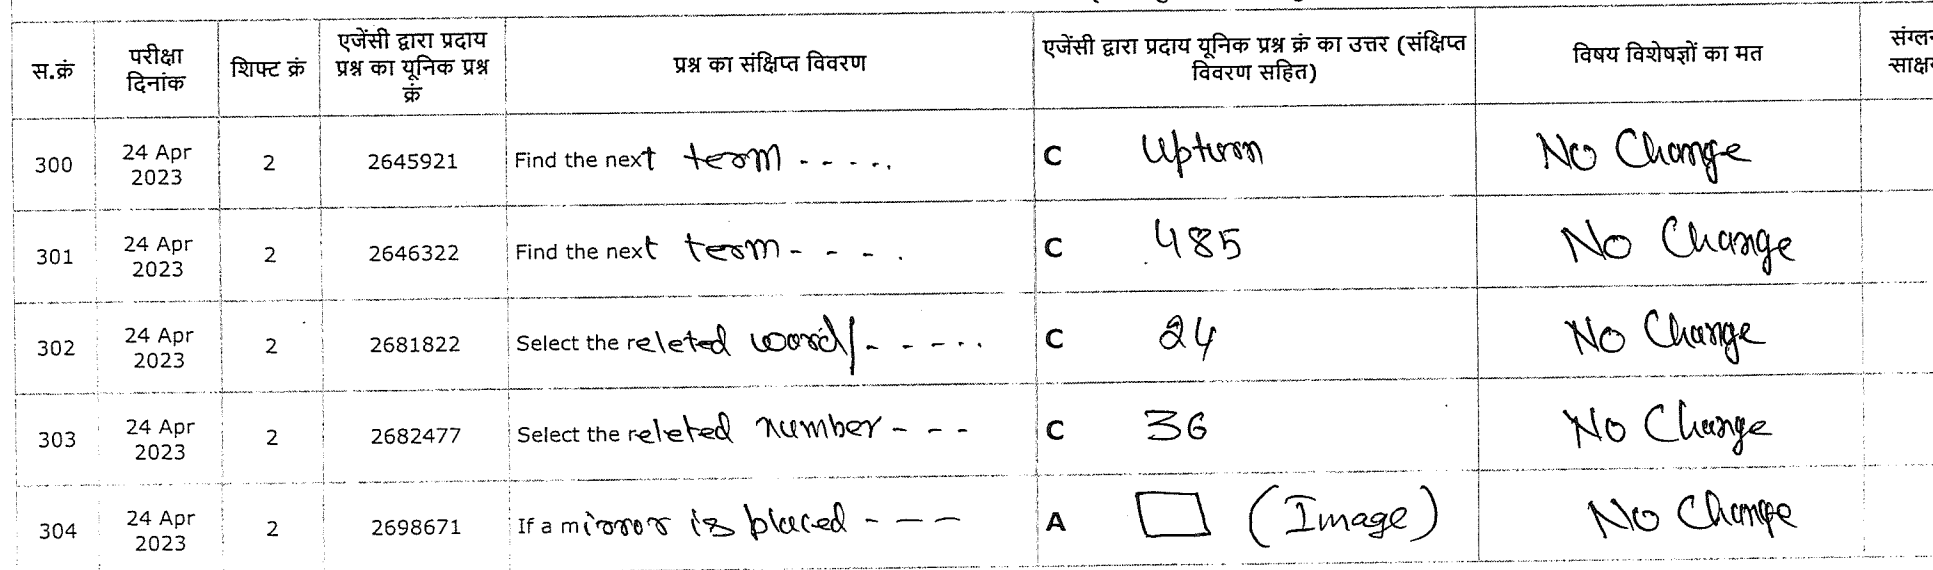 स.क्रं परीक्षा दिनांक शिफ्ट क्रं एजेंसी द्वारा प्रदाय प्रश्न का यूनिक प्रश्न क्रं प्रश्न का संक्षिप्त विवरण एजेंसी द्वारा प्रदाय यूनिक प्रश्न क्रं का उत्तर (संक्षिप्त विवरण सहित) विषय विशेषज्ञों का मत
300 24 Apr 2023 2 2645921 Find the next term ----- C Upturn No Change
301 24 Apr 2023 2 2646322 Find the next term ---- C 485 No Change
302 24 Apr 2023 2 2681822 Select the releted word/ ----- C 24 No Change
303 24 Apr 2023 2 2682477 Select the releted number --- C 36 No Change
304 24 Apr 2023 2 2698671 If a mirror is placed --- A (Image) No Change